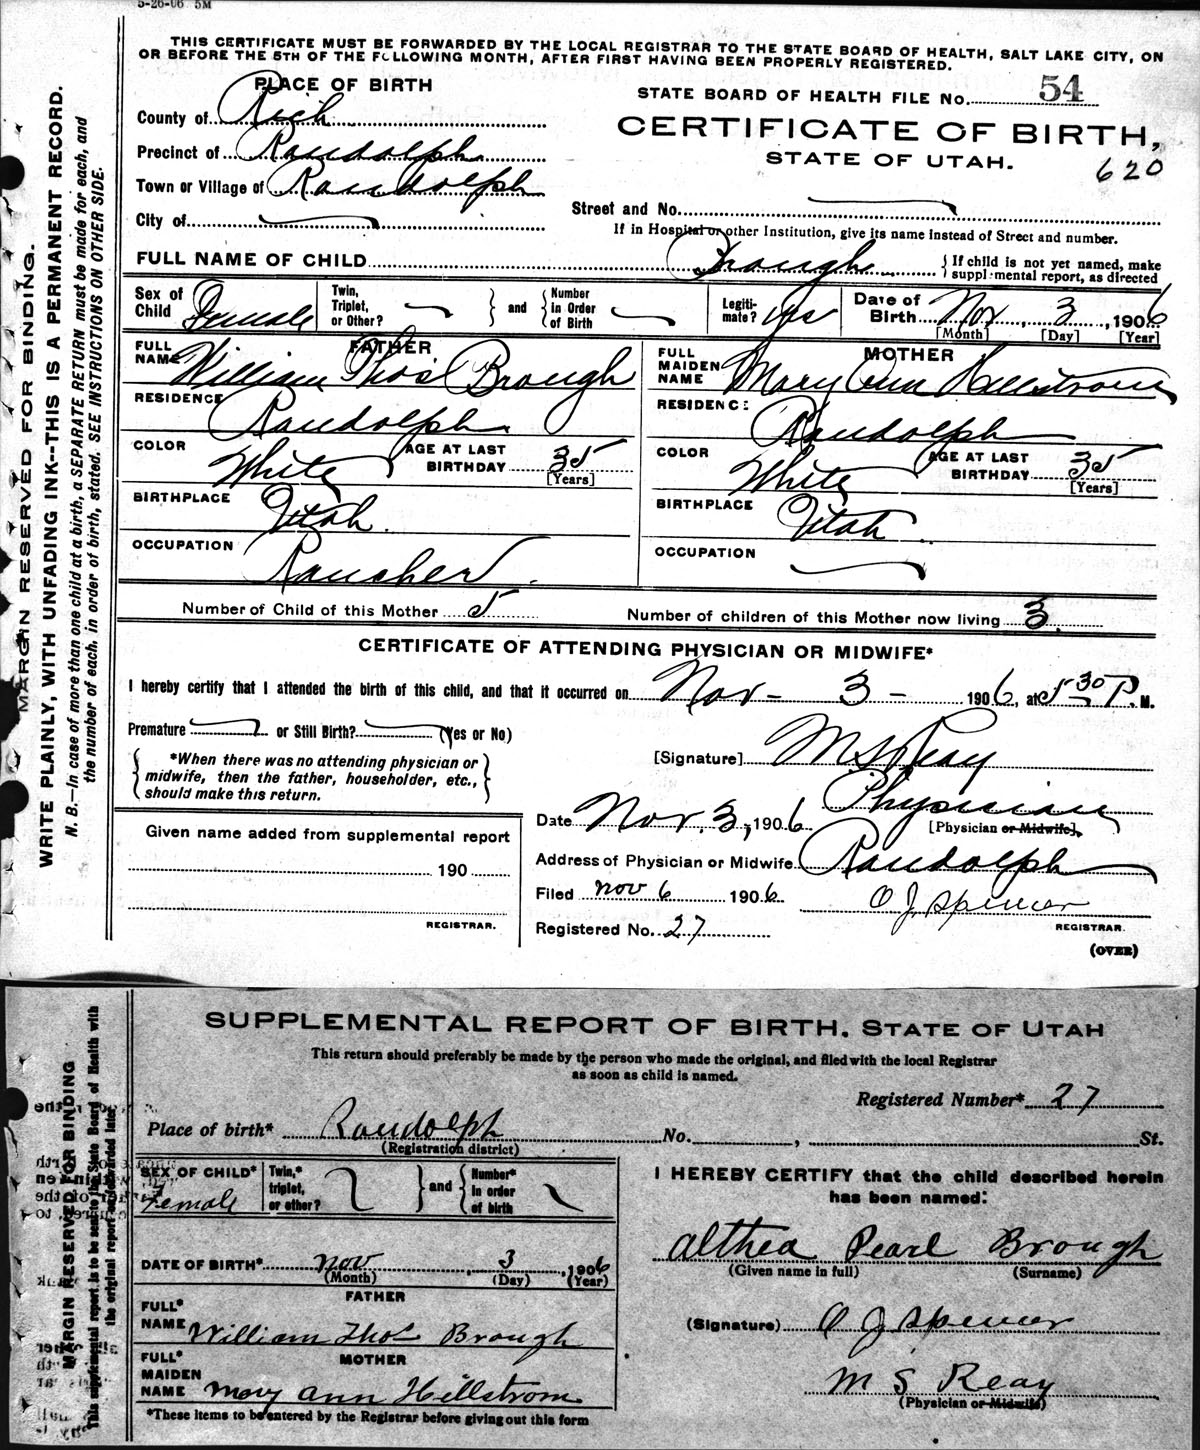 5-26-06 5M
THIS CERTIFICATE MUST BE FORWARDED BY THE LOCAL REGISTRAR TO THE STATE BOARD OF HEALTH, SALT LAKE CITY, ON
OR BEFORE THE 5TH OF THE FOLLOWING MONTH, AFTER FIRST HAVING BEEN PROPERLY REGISTERED.
PLACE OF BIRTH
County of Rich
Precinct of Randolph
Town or Village of Randolph
City of
STATE BOARD OF HEALTH FILE No. 54
CERTIFICATE OF BIRTH,
STATE OF UTAH.
620
Street and No.
If in Hospital or other Institution, give its name instead of Street and number.
FULL NAME OF CHILD Brough
If child is not yet named, make
supplemental report, as directed
Sex of Child Female
Twin, Triplet, or Other?
and
Number in Order of Birth
Legiti-mate? yes
Date of Birth Nov 3, 1906
[Month] [Day] [Year]
FATHER
FULL NAME William Thos Brough
RESIDENCE Randolph
COLOR White
AGE AT LAST BIRTHDAY 35
[Years]
BIRTHPLACE Utah
OCCUPATION Rancher
MOTHER
FULL MAIDEN NAME Mary Ann Hillstrom
RESIDENCE Randolph
COLOR White
AGE AT LAST BIRTHDAY 35
[Years]
BIRTHPLACE Utah
OCCUPATION
Number of Child of this Mother 5
Number of children of this Mother now living 3
CERTIFICATE OF ATTENDING PHYSICIAN OR MIDWIFE*
I hereby certify that I attended the birth of this child, and that it occurred on Nov - 3 - 1906, at 5-30 P. M.
Premature or Still Birth? (Yes or No)
*When there was no attending physician or
midwife, then the father, householder, etc.,
should make this return.
[Signature] M S Reay
Physician
[Physician or Midwife].
Date Nov. 3, 1906
Address of Physician or Midwife Randolph
Filed Nov 6 1906
O J Spencer
REGISTRAR.
Registered No. 27
(OVER)
Given name added from supplemental report
190
REGISTRAR.
MARGIN RESERVED FOR BINDING.
WRITE PLAINLY, WITH UNFADING INK--THIS IS A PERMANENT RECORD.
N. B.—In case of more than one child at a birth, a SEPARATE RETURN must be made for each, and
the number of each, in order of birth, stated. SEE INSTRUCTIONS ON OTHER SIDE.
SUPPLEMENTAL REPORT OF BIRTH. STATE OF UTAH
This return should preferably be made by the person who made the original, and filed with the local Registrar
as soon as child is named.
Registered Number* 27
Place of birth* Randolph No. , St.
(Registration district)
SEX OF CHILD* Female
Twin,* triplet, or other?
and
Number* in order of birth
DATE OF BIRTH* Nov, 3, 1906
(Month) (Day) (Year)
FATHER
FULL* NAME William Thos Brough
MOTHER
FULL* MAIDEN NAME Mary Ann Hillstrom
*These items to be entered by the Registrar before giving out this form
I HEREBY CERTIFY that the child described herein
has been named:
Althea Pearl Brough
(Given name in full) (Surname)
(Signature) O J Spencer
M S Reay
(Physician or Midwife)
MARGIN RESERVED FOR BINDING
This supplemental report is to be sent to the State Board of Health with
the original report as forwarded later